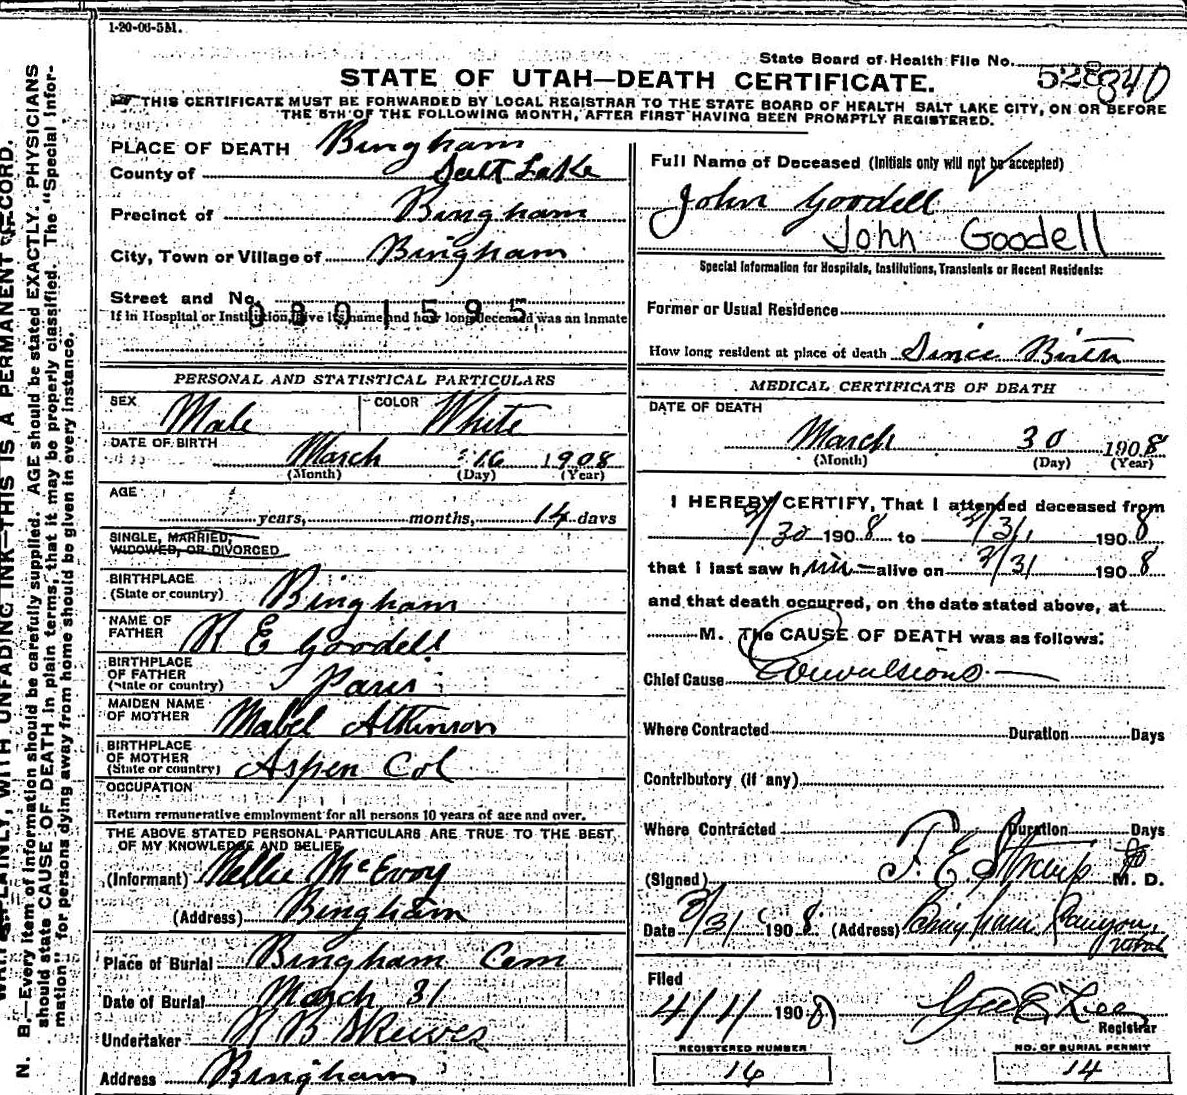 1-20-06-5M.
State Board of Health File No. 528 340
STATE OF UTAH—DEATH CERTIFICATE.
THIS CERTIFICATE MUST BE FORWARDED BY LOCAL REGISTRAR TO THE STATE BOARD OF HEALTH SALT LAKE CITY, ON OR BEFORE
THE 5TH OF THE FOLLOWING MONTH, AFTER FIRST HAVING BEEN PROMPTLY REGISTERED.
PLACE OF DEATH Bingham
County of Salt Lake
Precinct of Bingham
City, Town or Village of Bingham
Street and No.
0801595
If in Hospital or Institution, give its name and how long deceased was an Inmate
PERSONAL AND STATISTICAL PARTICULARS
SEX Male COLOR White
DATE OF BIRTH March 16 1908
(Month) (Day) (Year)
AGE
years, months, 14 days
SINGLE, MARRIED,
WIDOWED, OR DIVORCED
BIRTHPLACE
(State or country) Bingham
NAME OF
FATHER R E Goodell
BIRTHPLACE
OF FATHER
(State or country) Paris
MAIDEN NAME
OF MOTHER Mabel Atkinson
BIRTHPLACE
OF MOTHER
(State or country) Aspen Col
OCCUPATION
Return remunerative employment for all persons 10 years of age and over.
THE ABOVE STATED PERSONAL PARTICULARS ARE TRUE TO THE BEST
OF MY KNOWLEDGE AND BELIEF
(Informant) Nellie McEvoy
(Address) Bingham
Place of Burial Bingham Cem
Date of Burial March 31
Undertaker R B Skewes
Address Bingham
Full Name of Deceased (Initials only will not be accepted)
John Goodell
John Goodell
Special Information for Hospitals, Institutions, Transients or Recent Residents:
Former or Usual Residence
How long resident at place of death Since Birth
MEDICAL CERTIFICATE OF DEATH
DATE OF DEATH
March 30 1908
(Month) (Day) (Year)
I HEREBY CERTIFY, That I attended deceased from
3/30 1908 to 3/31 1908
that I last saw him alive on 3/31 1908
and that death occurred, on the date stated above, at
M. The CAUSE OF DEATH was as follows:
Chief Cause Convulsions
Where Contracted Duration Days
Contributory (if any)
Where Contracted Duration Days
(Signed) F. E. Straup M. D.
Date 3/31 1908 (Address) Bingham Canyon, Utah
Filed
4/1/ 1908 Geo E Lee
Registrar
REGISTERED NUMBER
16
NO. OF BURIAL PERMIT
14
N. B.—Every item of information should be carefully supplied. AGE should be stated EXACTLY. PHYSICIANS
should state CAUSE OF DEATH in plain terms, that it may be properly classified. The "Special Infor-
mation" for persons dying away from home should be given in every instance.
PLAINLY, WITH UNFADING INK—THIS IS A PERMANENT RECORD.